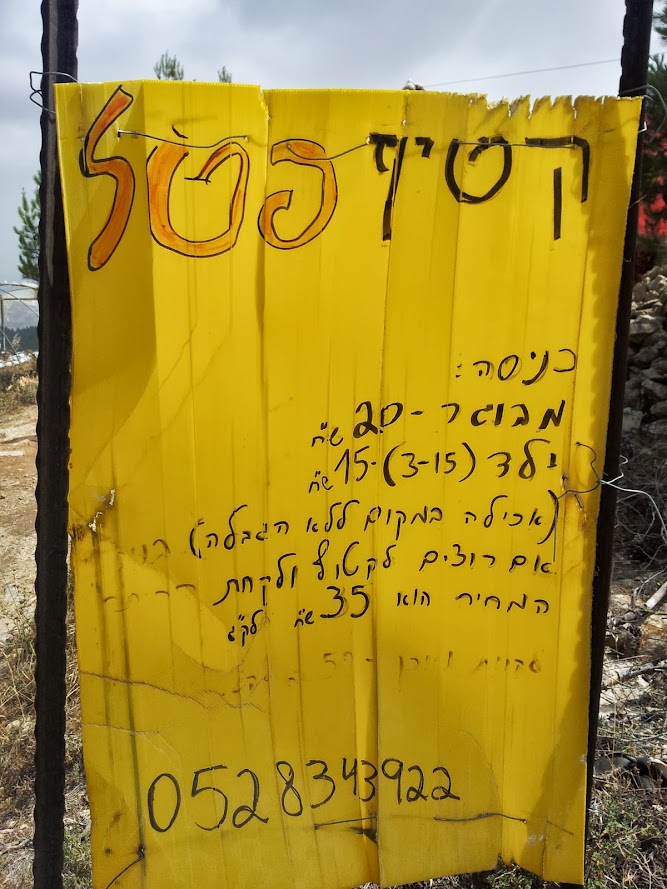 קטיף פטל
כניסה:
מבוגר - 20 ש"ח
ילד (3-15) - 15 ש"ח
(אכילה במקום ללא הגבלה)
אם רוצים לקטוף ולקחת
המחיר הוא 35 ש"ח לק"ג
0528343922